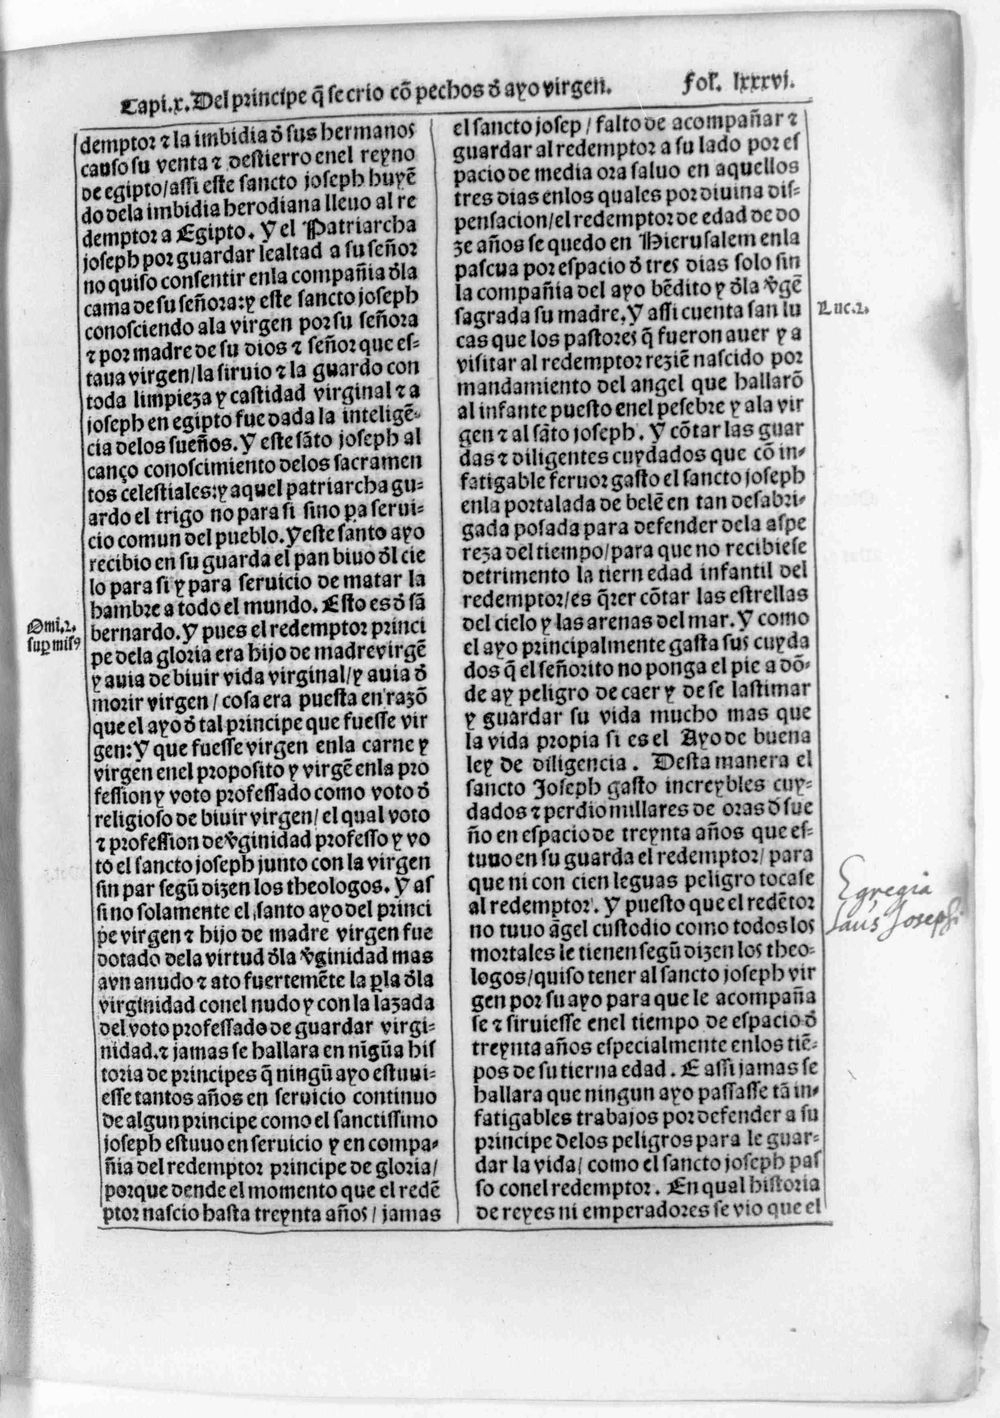 Capi.x. Del principe q̃ se crio cõ pechos ð ayo virgen.
fol. lxxxvj.
demptor ⁊ la imbidia ð sus hermanos
causo su venta ⁊ destierro enel reyno
de egipto/assi este sancto joseph huyẽ
do dela imbidia herodiana lleuo al re
demptor a Egipto. Y el Patriarcha
joseph por guardar lealtad a su señor
no quiso consentir enla compañia ðla
cama de su señora:y este sancto joseph
conosciendo ala virgen por su señora
⁊ por madre de su dios ⁊ señor que es-
taua virgen/la siruio ⁊ la guardo con
toda limpieza y castidad virginal ⁊ a
joseph en egipto fue dada la inteligẽ-
cia delos sueños. Y este sãto joseph al
canço conoscimiento delos sacramen
tos celestiales:y aquel patriarcha gu-
ardo el trigo no para si sino pa serui-
cio comun del pueblo. Y este santo ayo
recibio en su guarda el pan biuo ðl cie
lo para si y para seruicio de matar la
hambre a todo el mundo. Esto es ð sã
bernardo. Y pues el redemptor princi
pe dela gloria era hijo de madre virgẽ
y auia de biuir vida virginal/y auia ð
morir virgen/cosa era puesta en razõ
que el ayo ð tal principe que fuesse vir
gen: Y que fuesse virgen enla carne y
virgen enel proposito y virgẽ enla pro
fession y voto professado como voto ð
religioso de biuir virgen/el qual voto
⁊ profession de v̄ginidad professo y vo
to el sancto joseph junto con la virgen
sin par segũ dizen los theologos. Y as
si no solamente el santo ayo del princi
pe virgen ⁊ hijo de madre virgen fue
dotado dela virtud ðla v̄ginidad mas
avn anudo ⁊ ato fuertemẽte la p̱la ðla
virginidad conel nudo y con la lazada
del voto professado de guardar virgi-
nidad.⁊ jamas se hallara en nĩgũa his
toria de principes q̃ ningũ ayo estuui-
esse tantos años en seruicio continuo
de algun principe como el sanctissimo
joseph estuuo en seruicio y en compa-
ñia del redemptor principe de gloria/
porque dende el momento que el redẽ
ptor nascio hasta treynta años/jamas
Omi.2.
sup̱ mis9
el sancto josep/falto de acompañar ⁊
guardar al redemptor a su lado por es
pacio de media ora saluo en aquellos
tres dias enlos quales por diuina dis-
pensacion/el redemptor de edad de do
ze años se quedo en Hierusalem enla
pascua por espacio ð tres dias solo sin
la compañia del ayo bẽdito y ðla v̄gẽ
sagrada su madre. Y assi cuenta san lu
cas que los pastores q̃ fueron a uer y a
visitar al redemptor reziẽ nascido por
mandamiento del angel que hallarõ
al infante puesto enel pesebre y ala vir
gen ⁊ al sãto joseph. Y cõtar las guar
das ⁊ diligentes cuydados que cõ in-
fatigable feruor gasto el sancto joseph
enla portalada de belẽ en tan desabri-
gada posada para defender dela aspe
reza del tiempo/para que no recibiese
detrimento la tiern edad infantil del
redemptor/es q̃rer cõtar las estrellas
del cielo y las arenas del mar. Y como
el ayo principalmente gasta sus cuyda
dos q̃ el señorito no ponga el pie a dõ-
de ay peligro de caer y de se lastimar
y guardar su vida mucho mas que
la vida propia si es el Ayo de buena
ley de diligencia. Desta manera el
sancto Joseph gasto increybles cuy-
dados ⁊ perdio millares de oras ð sue
ño en espacio de treynta años que es-
tuuo en su guarda el redemptor/para
que ni con cien leguas peligro tocase
al redemptor. Y puesto que el redẽtor
no tuuo ãgel custodio como todos los
mortales le tienen segũ dizen los theo-
logos/quiso tener al sancto joseph vir
gen por su ayo para que le acompaña
se ⁊ siruiesse enel tiempo de espacio ð
treynta años especialmente enlos tiẽ-
pos de su tierna edad. E assi jamas se
hallara que ningun ayo passasse tã in-
fatigables trabajos por defender a su
principe delos peligros para le guar-
dar la vida/como el sancto joseph pas
so conel redemptor. En qual historia
de reyes ni emperadores se vio que el
Luc.2.
Egregia
laus Josephi